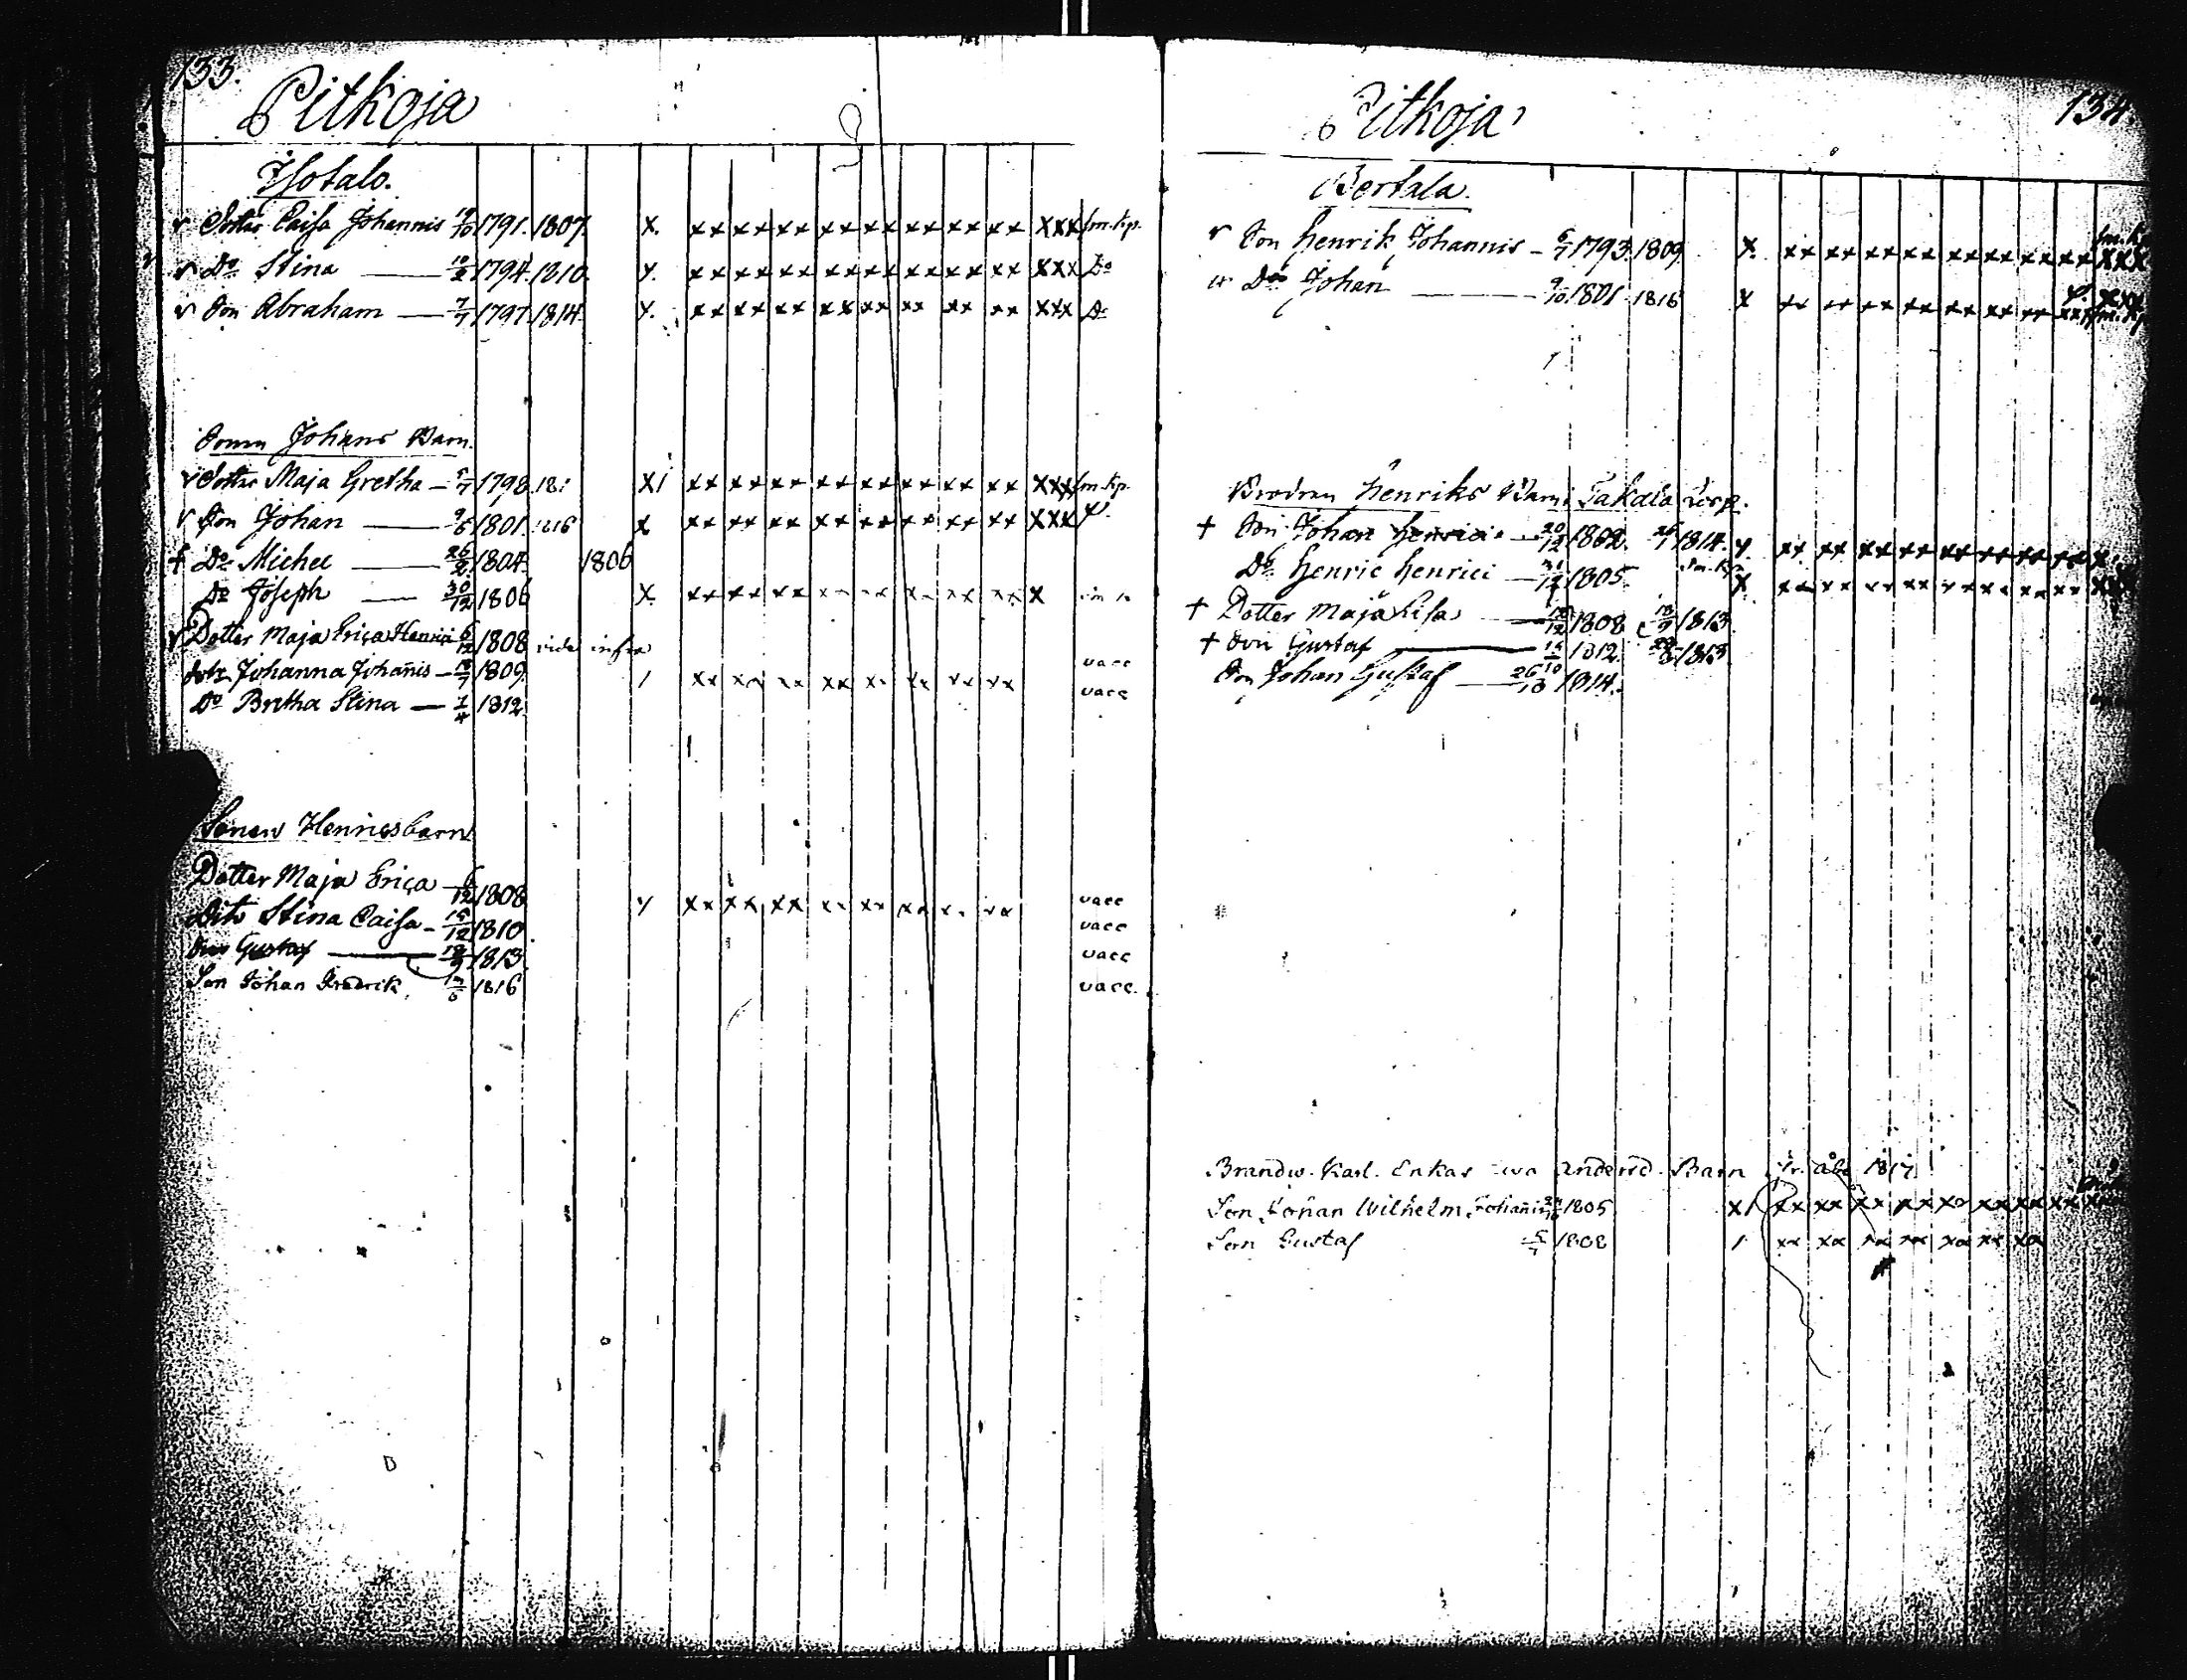 133.
Pitkoja
Isotalo.
v Dotter Caisa Johannis 19/10 1791. 1807. X. xx xx xx xx xx xx xx xx XXX sm.kp.
v Do Stina 1794. 1810. xx xx xx xx xx xx xx xx XXX Do
v Son Abraham 7/7 1797. 1814. xx xx xx xx xx xx xx xx XXX Do
Sonen Johans Barn.
v Dotter Maja Gretha 1798 XI xx xx xx xx xx xx xx xx XXX sm.kp.
v Son Johan 9/5 1801. 1816 X xx xx xx xx xx xx xx xx XXX
† Do Michel 26/2 1804. 1806
Do Joseph 30/12 1806 X. xx xx xx xx X
v Dotter Maja Erica Henrici 6/12 1808 vide infra
dotr Johanna Johannis 1809 / xx xx xx xx xx xx xx xx vacc
Do Bretha Stina 1812. vacc
Sonen Henricsbarn
Dotter Maja Erica 6/12 1808 xx xx xx xx xx vacc
Dito Stina Caisa 15/12 1810 vacc
Son Gustaf 1813 vacc
Son Johan Fredrik 1816 vacc.
134.
Pitkoja
Bertala.
v Son Henrik Johannis 1793. 1809 X. xx xx xx xx xx xx xx xx XXX
Do Johan 9/10 1801 1816 X xx xx xx xx xx xx xx XXX sm.kp
Brodren Henriks Barn Takala Torp.
† Son Johan Henrici 20/12 1802. 1814. xx xx xx xx xx xx xx
Do Henric Henrici 1805. X xx xx xx xx xx xx xx xx
† Dotter Maja Lisa 1808 1813
† Son Gustaf 1812. 1813
Son Johan Gustaf 26/10 1814.
Brandw. Karl. Enkas Barn fr. Åbo 1817
Son Johan Wilhelm Johannis 1805 xx xx xx xx xx xx xx xx
Son Gustaf 1808 / xx xx xx xx xx xx xx